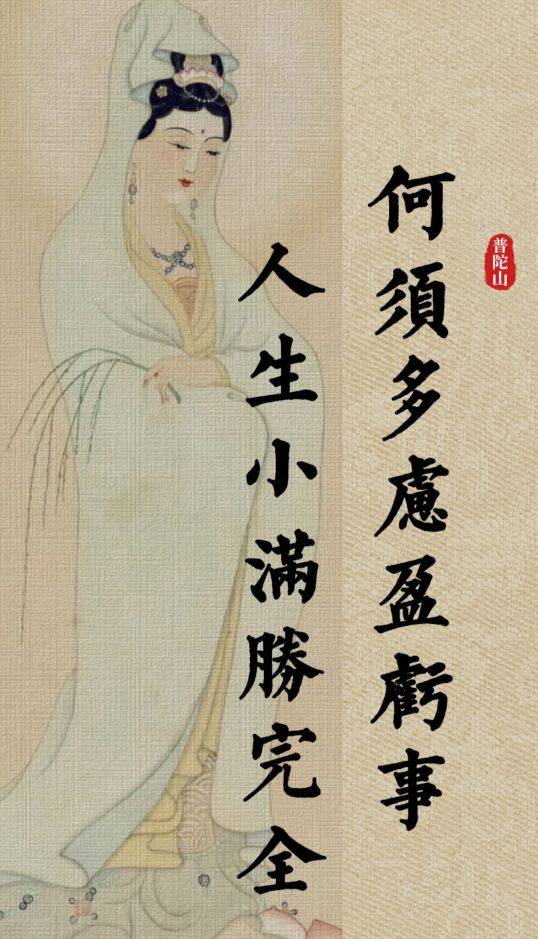 何須多慮盈虧事
人生小滿勝完全
普陀山